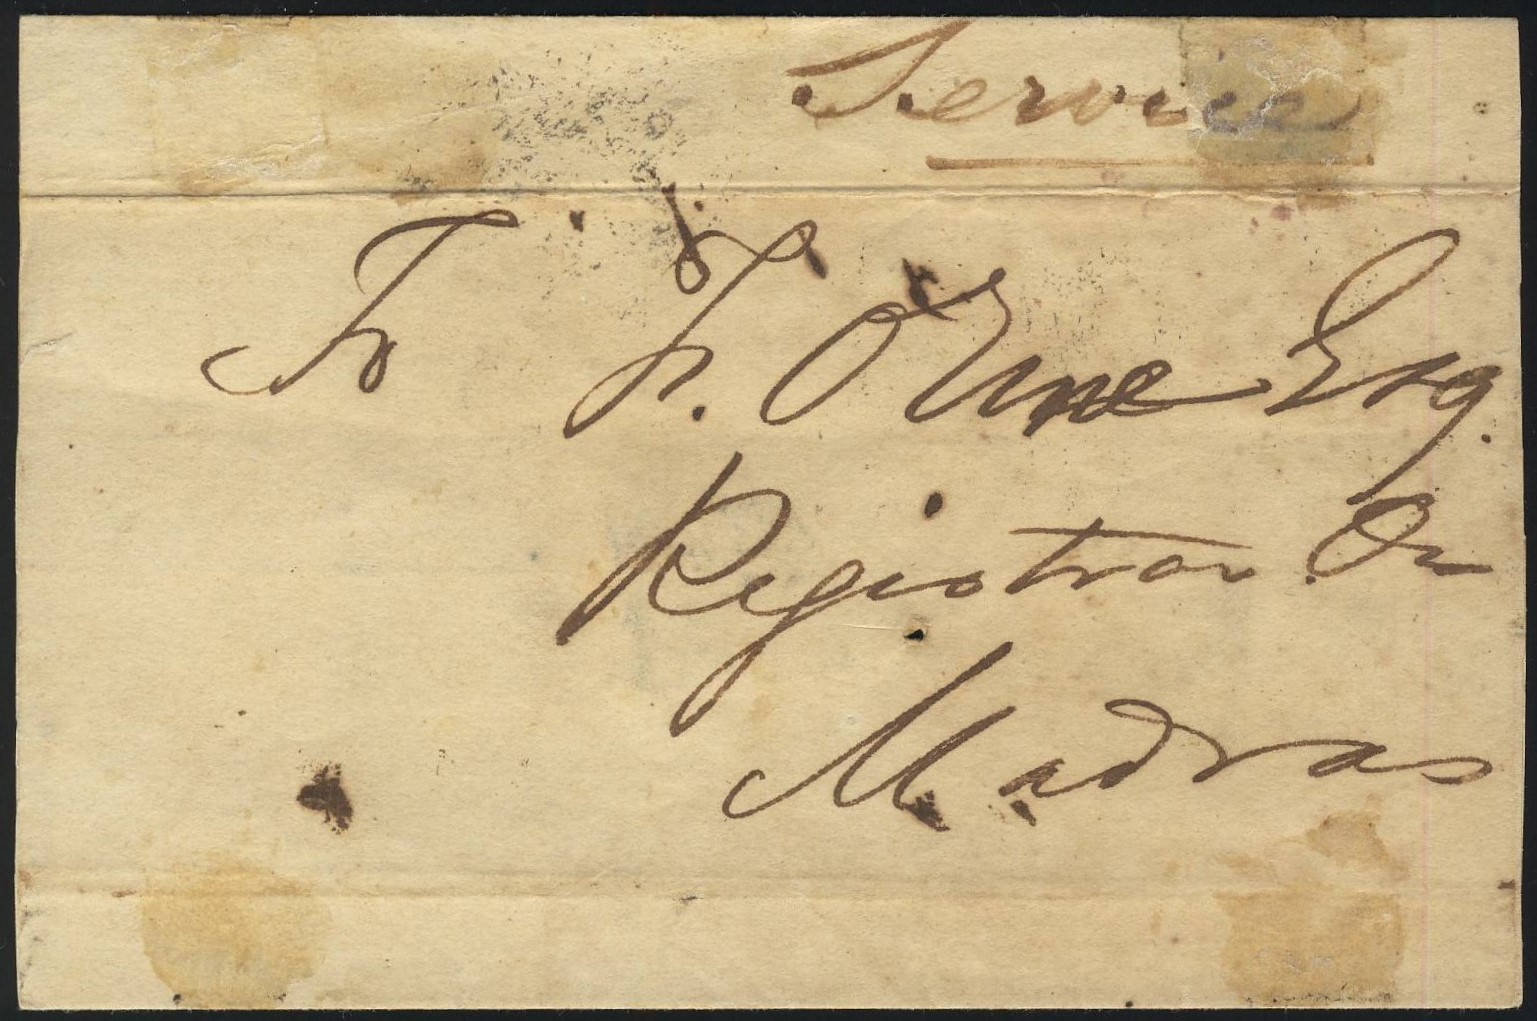 Service
To F. Orme Esq.
Registrar
Madras